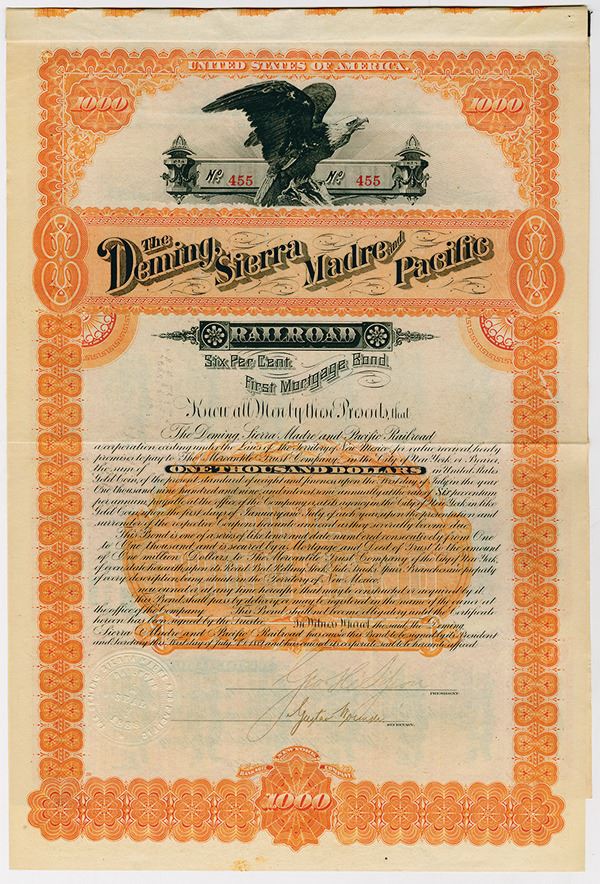 UNITED STATES OF AMERICA.
1000 1000
No. 455 No. 455
The Deming, Sierra Madre and Pacific
RAILROAD
Six Per Cent.
First Mortgage Bond
Know all Men by these Presents, that
The Deming Sierra Madre and Pacific Railroad
a corporation existing under the Laws of the Territory of New Mexico for value received, hereby
promises to pay to The Mercantile Trust Company, in the City of New York, or Bearer,
the sum of ONE THOUSAND DOLLARS in United States
Gold Coin, of the present standard of weight and fineness upon the First day of July in the year
One Thousand nine hundred and nine, and interest semi annually at the rate of Six per centum
per annum, payable at the office of the Company or at its agency in the City of New York, in like
Gold Coin, on the first days of January and July of each year, on the presentation and
surrender of the respective Coupons hereunto annexed as they severally become due.
This Bond is one of a series of like tenor and date numbered consecutively from One
to One thousand and is secured by a Mortgage and Deed of Trust to the amount
of One million Dollars, to The Mercantile Trust Company of the City of New York,
of even date herewith, upon its Road Bed, Rolling Stock, Side Tracks, Plant, Franchises, Property
of every description, being situate in the Territory of New Mexico,
now owned or at any time hereafter that may be constructed or acquired by it.
This Bond shall pass by delivery or may be registered in the name of the owner at
the office of the Company. This Bond shall not become obligatory until the Certificate
hereon has been signed by the Trustee. In Witness Whereof, the said, the Deming
Sierra Madre and Pacific Railroad has caused this Bond to be signed by its President
and Secretary this First day of July, A.D. 1889 and has caused its corporate seal to be hereunto affixed.
PRESIDENT.
SECRETARY.
NEW YORK
BANK NOTE COMPANY
1000